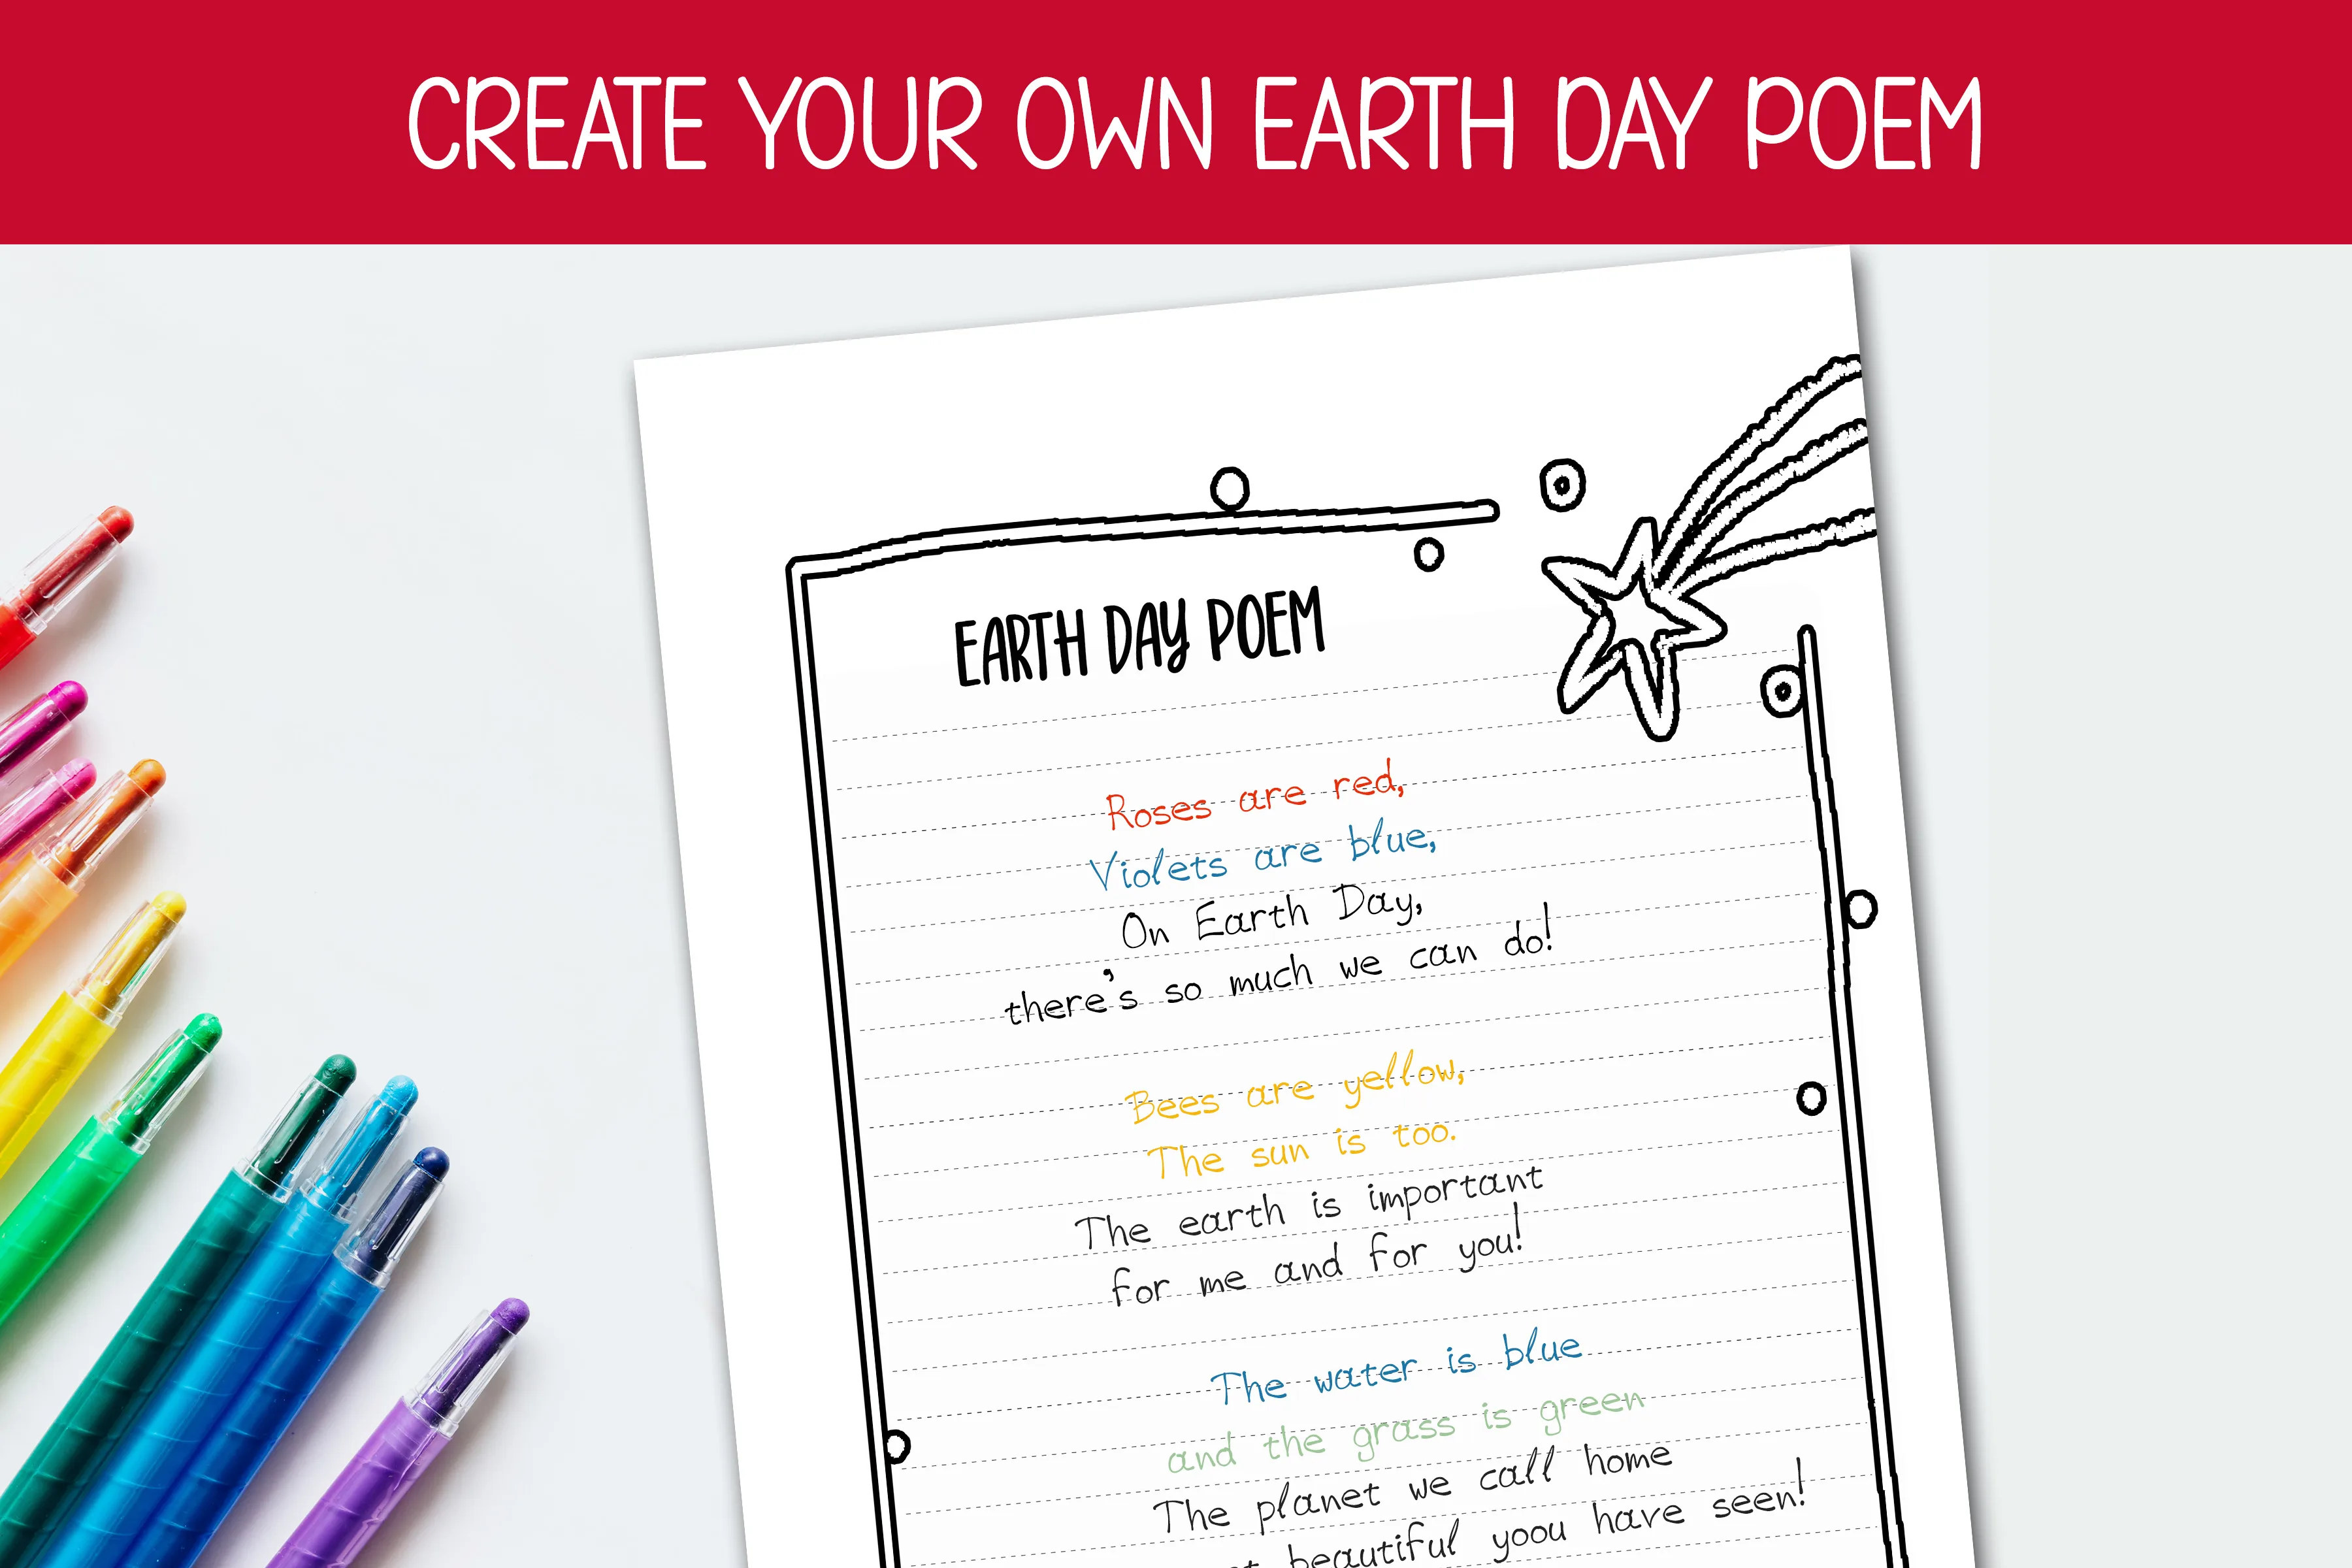 CREATE YOUR OWN EARTH DAY POEM
EARTH DAY POEM
Roses are red,
Violets are blue,
On Earth Day,
there's so much we can do!
Bees are yellow,
The sun is too.
The earth is important
for me and for you!
The water is blue
and the grass is green
The planet we call home
beautiful yoou have seen!